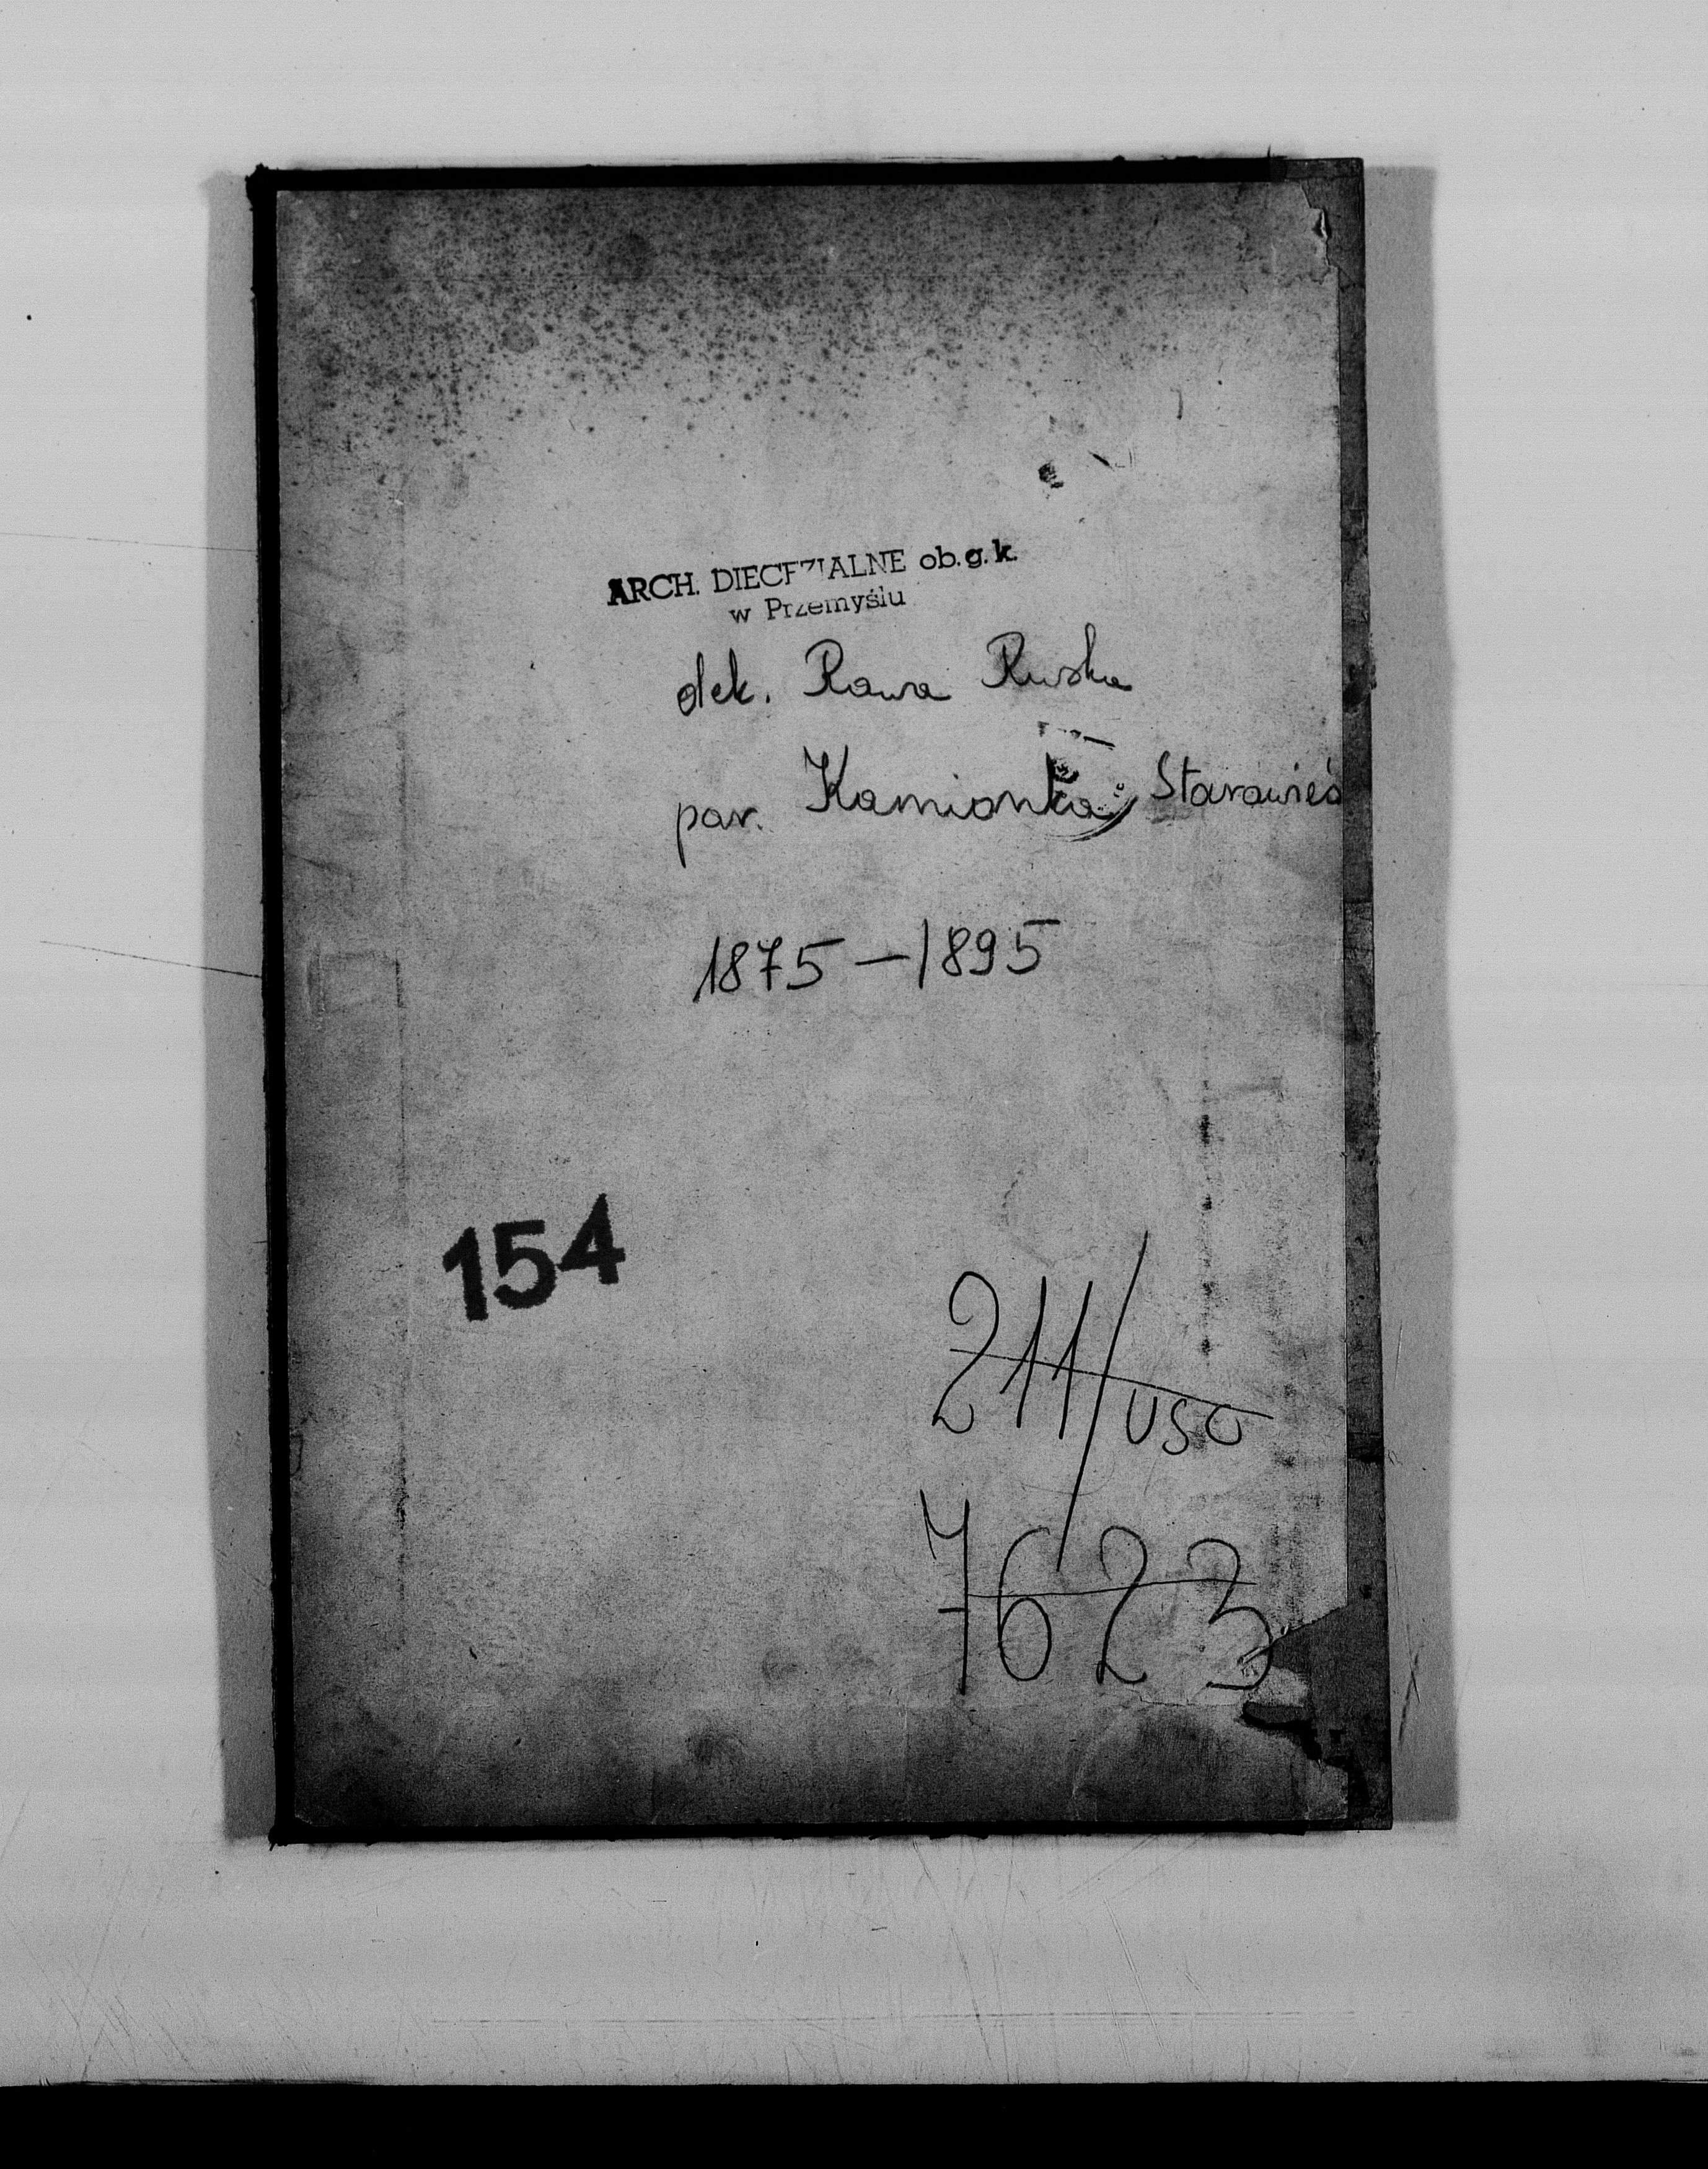 ARCH. DIECEZJALNE ob. g. k.
w Przemyślu
dek. Rawa Ruska
par. Kamionka Starawieś
1875 – 1895
154
211/USC
7623